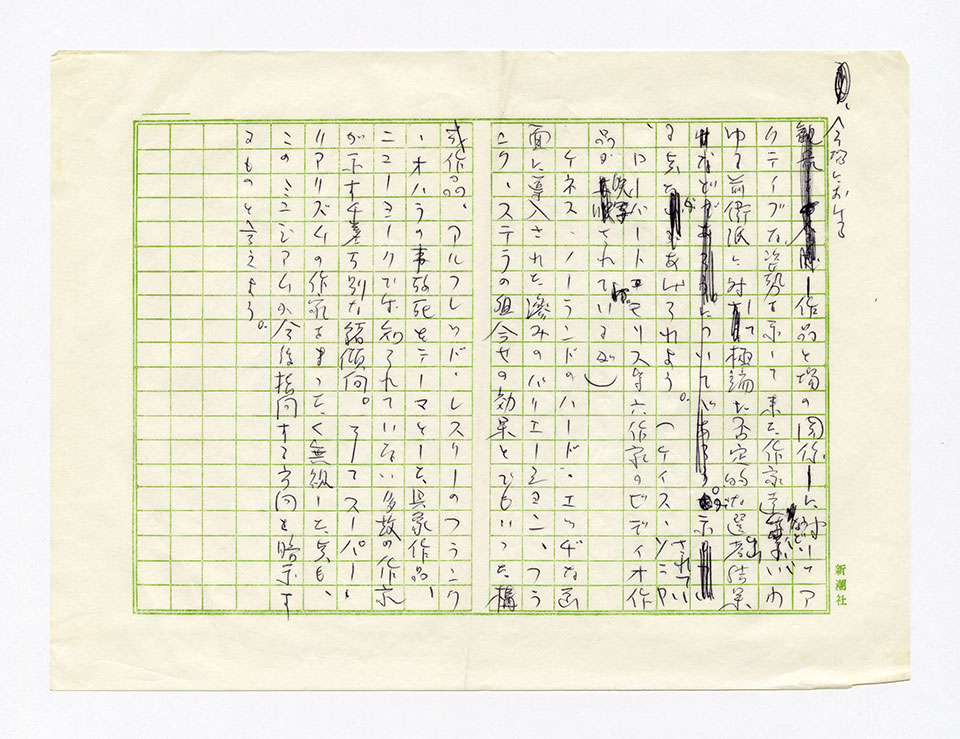 今日における
観衆と 作品と場の関係ーに対してア
クティブな姿勢を示して来た作家達 などいわ
ゆる前衛派に対して極端な否定的な選出結果
などが について 示されてい
る点も あげられよう。(ケイス・ソニヤ
、ロバート・モリス等六作家のビディオ作
品が 映写されているが)
ケネス・ノーランドのハード・エッヂな画
面に導入された滲みのバリエーション、フラ
ンク・ステラの組合せの効果とでもいった構
成作品、アルフレッド・レスリーのフランク
・オハラの事故死をテーマとした具象作品、
ニューヨークでは知られていない多数の作家
が示す千差万別な諸傾向。そしてスーパー・
リアリズムの作家をまったく無視した点も、
このミュージアムの今後指向する方向を暗示す
るものと言えよう。
新潮社